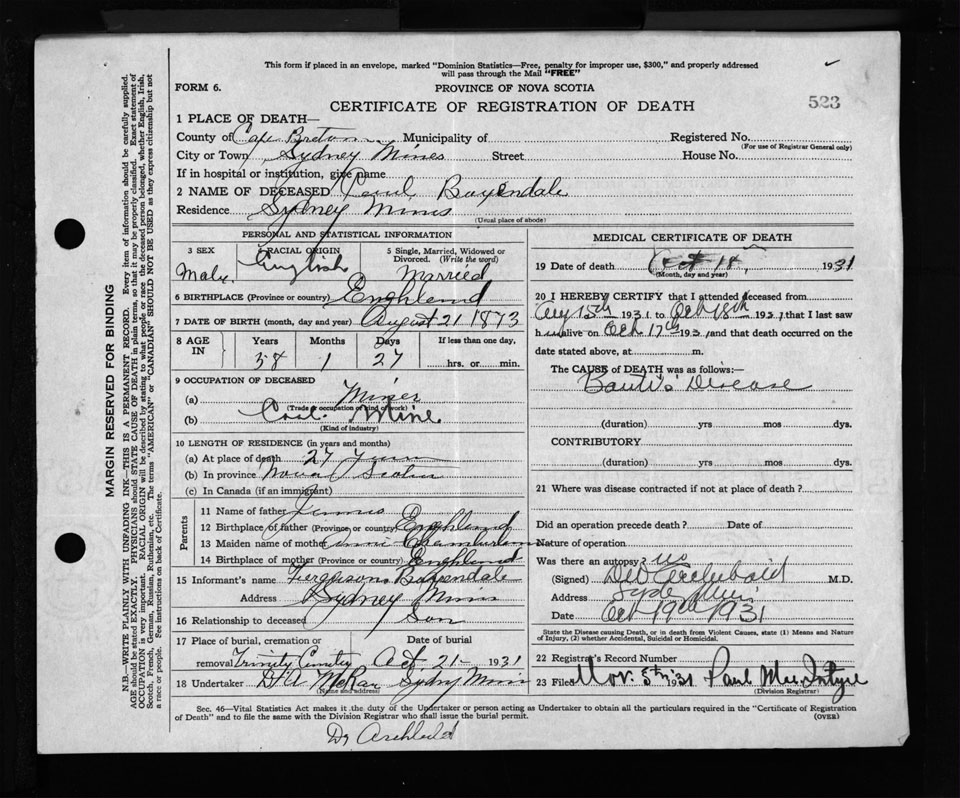 This form if placed in an envelope, marked "Dominion Statistics—Free, penalty for improper use, $300," and properly addressed
will pass through the Mail "FREE"
FORM 6.
PROVINCE OF NOVA SCOTIA
523
CERTIFICATE OF REGISTRATION OF DEATH
1 PLACE OF DEATH—
County of Cape Breton Municipality of Registered No.
(For use of Registrar General only)
City or Town Sydney Mines Street House No.
If in hospital or institution, give name
2 NAME OF DECEASED Baxendale
Residence Sydney Mines
(Usual place of abode)
PERSONAL AND STATISTICAL INFORMATION
3 SEX
Male
4 RACIAL ORIGIN
English
5 Single, Married, Widowed or
Divorced. (Write the word)
Married
6 BIRTHPLACE (Province or country) Enghlend
7 DATE OF BIRTH (month, day and year) August 21 1873
8 AGE IN Years Months Days If less than one day,
58 1 27 hrs. or min.
9 OCCUPATION OF DECEASED
(a) Miner
(Trade or occupation of kind of work)
(b) Coal Mine
(Kind of industry)
10 LENGTH OF RESIDENCE (in years and months)
(a) At place of death 27 years
(b) In province Nova Scotia
(c) In Canada (if an immigrant)
Parents
11 Name of father James
12 Birthplace of father (Province or country) Enghlend
13 Maiden name of mother Annie Chamberlane
14 Birthplace of mother (Province or country) Enghlend
15 Informant's name Ferguson Baxendale
Address Sydney Mines
16 Relationship to deceased Son
17 Place of burial, cremation or Date of burial
removal Trinity Cemetery Oct 21 - 1931
18 Undertaker D. A. McRae Sydney Mines
(Name and address)
MEDICAL CERTIFICATE OF DEATH
19 Date of death Oct 18, 1931
(Month, day and year)
20 I HEREBY CERTIFY that I attended deceased from
Aug 15th 1931 to Oct 18th 1931, that I last saw
him alive on Oct 17th 1931, and that death occurred on the
date stated above, at m.
The CAUSE of DEATH was as follows:—
Banti's Disease
(duration) yrs mos dys.
CONTRIBUTORY
(duration) yrs mos dys.
21 Where was disease contracted if not at place of death?
Did an operation precede death? Date of
Nature of operation
Was there an autopsy? no
(Signed) Archibald M.D.
Address Sydney Mines
Date Oct 19th 1931
State the Disease causing Death, or in death from Violent Causes, state (1) Means and Nature
of Injury, (2) whether Accidental, Suicidal or Homicidal.
22 Registrar's Record Number
23 Filed Nov. 5th 1931 Paul MacIntyre
(Division Registrar)
Sec. 46—Vital Statistics Act makes it the duty of the Undertaker or person acting as Undertaker to obtain all the particulars required in the "Certificate of Registration
of Death" and to file the same with the Division Registrar who shall issue the burial permit.
(OVER)
Dr Archibald
MARGIN RESERVED FOR BINDING
N.B.—WRITE PLAINLY WITH UNFADING INK—THIS IS A PERMANENT RECORD. Every item of information should be carefully supplied.
AGE should be stated EXACTLY. PHYSICIANS should STATE CAUSE OF DEATH in plain terms, so that it may be properly classified. Exact statement of
OCCUPATION is very important. RACIAL ORIGIN will be described by stating to what people or race the deceased person belonged, whether English, Irish,
Scotch, French, German, Russian, Ruthenian, etc. The terms "AMERICAN" or "CANADIAN" SHOULD NOT BE USED as they express citizenship but not
a race or people. See instructions on back of Certificate.